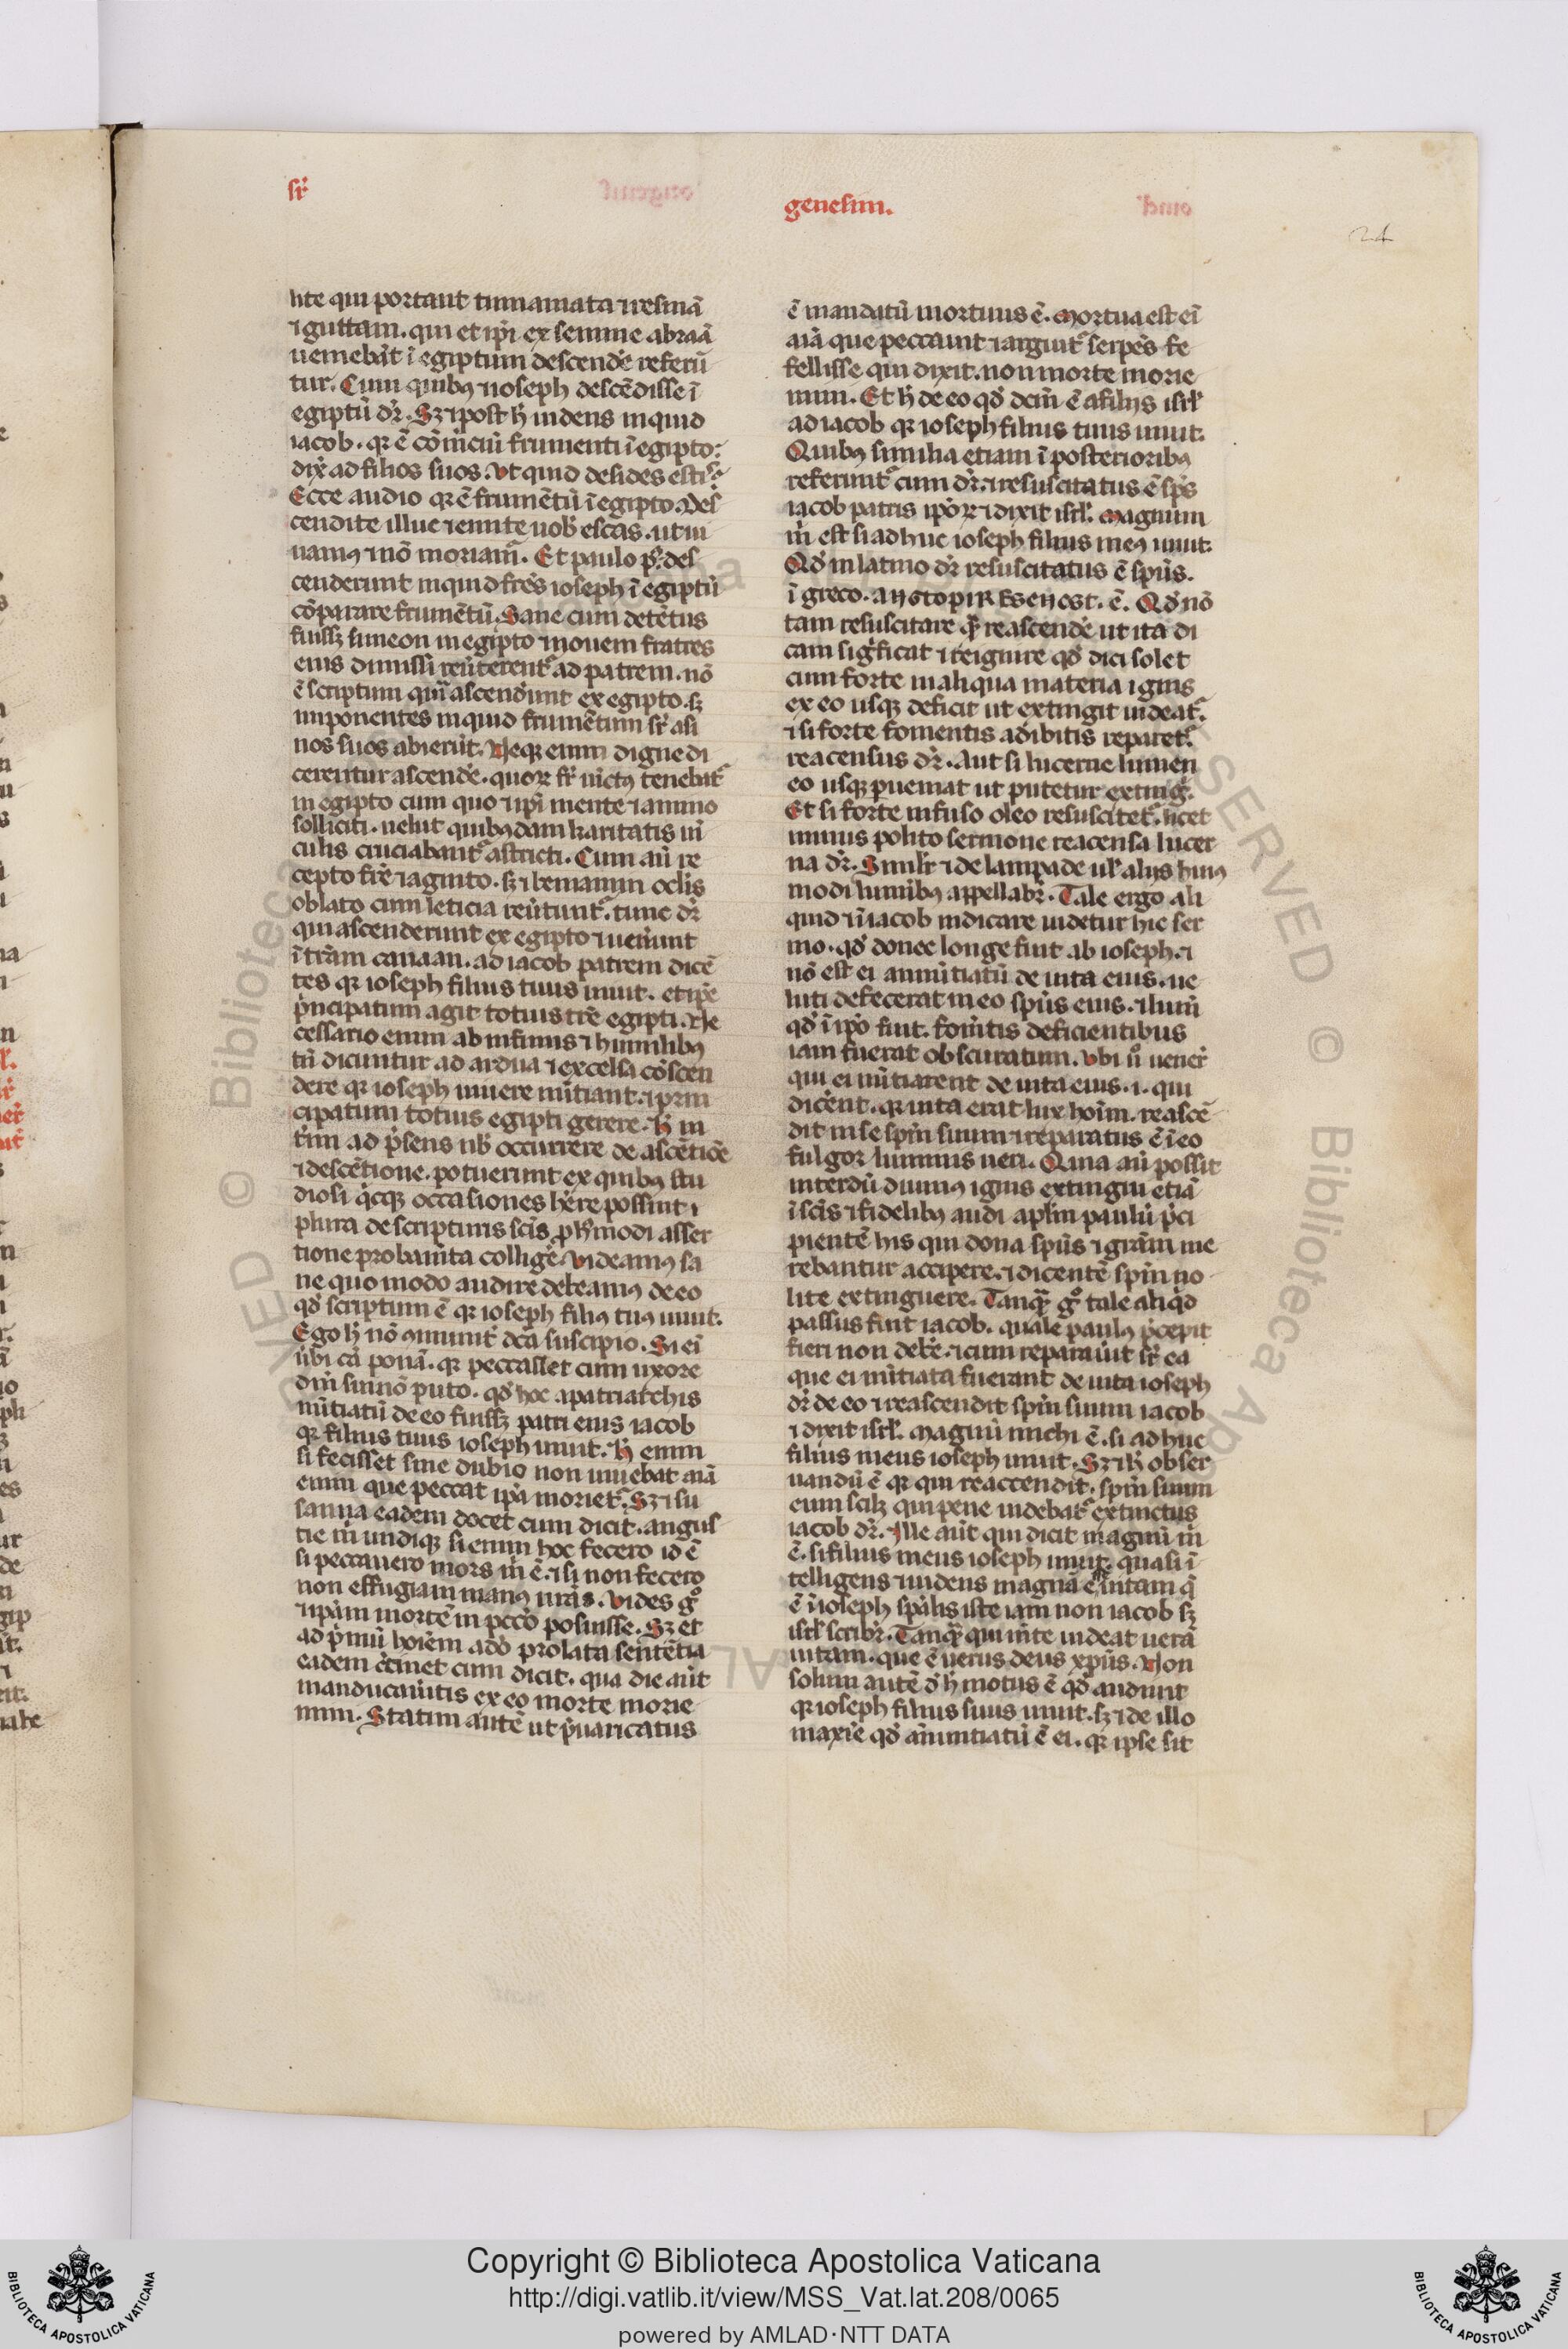 sr̄
genesim.
24
lite qui portant timiamata ⁊ resinā
⁊ guttam. qui et ip̄i ex semine abraā
ueniebāt ī egiptum descendē referū
tur. Cum quibꝰ ⁊ ioseph descēdisse ī
egiptū dr̄. Sꝫ ⁊ post h̄ uidens inquid
iacob. qꝛ ē cōm̄ciū frumenti ī egipto:
dix̄ ad filios suos. Vt quid desides estis
Ecce audio qꝛ ē frumētū ī egipto. Des
cendite illuc ⁊ emite uob̄ escas. ut ui
uamꝰ ⁊ nō moriam̄. Et paulo p̄. des
cenderunt inquid fr̄es ioseph ī egiptū
cōparare frumētū. Sane cum detētus
fuissꝫ simeon in egipto ⁊ nouem fratres
eius dimissi reūterent̄ ad patrem. nō
ē scriptum qm̄ ascend̄unt ex egipto. sꝫ
imponentes inquid frumētum sr̄ asi
nos suos abierūt. Neqꝫ enim digne di
cerentur ascendē. quoꝝ fr̄ uictꝰ tenebat̄
in egipto cum quo ⁊ ip̄i mente ⁊ animo
solliciti. uelut quibꝰdam karitatis ui
culis cruciabant̄ astricti. Cum aū re
cepto fr̄e ⁊ agnito. sꝫ ⁊ beniamyn oclis
oblato cum leticia reūtunt̄. tunc dr̄
qui ascenderunt ex egipto ⁊ uen̄unt
ī tr̄am canaan. ad iacob patrem dicē
tes qꝛ ioseph filius tuus uiuit. et ip̄e
p̄ncipatum agit totius tr̄e egipti. Ne
cessario enim ab infimis ⁊ humilibꝰ
tū dicuntur ad ardua ⁊ excelsa cōscen
dere qꝛ ioseph uiuere nūtiant. ⁊ prin
cipatum totius egipti gerere. h̄ in
t̄im ad p̄sens nb̄ occurrere de ascētiōe
⁊ descētione. potuerunt ex quibꝰ stu
diosi q̄cqꝫ occasiones h̄ere possunt ⁊
plura de scripturis scīs ꝓ h̄modi asser
tione probam̄ta colligē. Videamꝰ sa
ne quo modo audire debeamꝰ de eo
qd̄ scriptum ē qꝛ ioseph filiꝰ tuꝰ uiuit.
Ego h̄ nō cōmunit̄ dc̄a suscipio. Si ei
ūbi cā ponā. qꝛ peccasset cum uxore
dn̄i sui nō puto. qd̄ hoc a patriarchis
nūtiatū de eo fuissꝫ patri eius iacob
qꝛ filius tuus ioseph uiuit. h̄ enim
si fecisset sine dubio non uiuebat aīa
enim que peccat ip̄a moriet̄. Sꝫ ⁊ su
sanna eadem docet cum dicit. angus
tie m̄ undiqꝫ si enim hoc fecero id ē
si peccauero mors m̄ ē. ⁊ si non fecero
non effugiam manꝰ ur̄as. Vides gͦ
⁊ ip̄am mortē in pccō posuisse. Sꝫ et
ad p̄mū hoīem adō prolata sentētia
eadem c̄tinet cum dicit. qua die aūt
manducau̅itis ex eo morte morie
mini. Statim autē ut p̄uaricatus
ē mandatū mortuus ē. Mortua est ei
aīa que peccauit ⁊ arguit̄ serpēs fe
fellisse qui dixit. non morte morie
mini. Et h̄ de eo qd̄ dcm̄ ē a filiis isrl̄
ad iacob qꝛ ioseph filius tuus uiuit.
Quibꝰ similia etiam ī posterioribꝰ
referunt̄ cum dr̄. ⁊ resuscitatus ē sp̄s
iacob patris ip̄oꝝ ⁊ dixit isrl̄. Magnum
m̄ est si adhuc ioseph filius meꝰ uiuit.
Qd̄ in latino dr̄ resuscitatus ē spūs.
ī greco. ē. Qd̄ nō
tam resuscitare qͣ̄ reascendē ut ita di
cam sig̅ficat ⁊ reignire qd̄ dici solet
cum forte in aliqua materia ignis
ex eo usqꝫ deficit ut extingui uideat̄.
⁊ si forte fomentis adibitis reparet̄.
reacensus dr̄. Aut si lucerne lumen
eo usqꝫ pueniat ut putetur extingi.
Et si forte infuso oleo resuscitet̄. licet
minus polito sermone reacensa lucer
na dr̄. Simil̄r ⁊ de lampade ul̄ aliis huiꝰ
modi luminibꝰ appellabr̄. Tale ergo ali
quid ⁊ iacob indicare uidetur hic ser
mo. qd̄ donec longe fuit ab ioseph. ⁊
nō est ei annūtiatū de uita eius. ue
luti defecerat in eo spūs eius. ⁊ lum̄
qd̄ ī ip̄o fuit. fom̄tis deficientibus
iam fuerat obscuratum. Vbi ū uener̄
qui ei nūtiarent de uita eius. i. qui
dicēnt. qꝛ uita erat lux hoīm. reascē
dit in se spīm suum ⁊ reparatus ē ī eo
fulgor luminis ueri. Quia aū possit
interdū diuinꝰ ignis extingui etiā
ī scīs ⁊ fidelibꝰ audi apl̄m paulū p̄ci
pientē his qui dona spūs ⁊ gr̄am me
rebantur accipere. ⁊ dicentē spīm no
lite extinguere. Tanqͣ̄ gͦ tale aliqd̄
passus fuit iacob. quale paulꝰ p̄cepit
fieri non debē. ⁊ cum reparau̅it sr̄ ea
que ei nūtiata fuerant de uita ioseph
dr̄ de eo ⁊ reascendit spīm suum iacob
⁊ dixit isrl̄. Magnū michi ē. si adhuc
filius meus ioseph uiuit. Sꝫ ⁊ h̄ obser
uandū ē qꝛ qui reaccendit. spīm suum
eum scilꝫ qui pene uidebat̄ extinctus
iacob dr̄. Ille aūt qui dicit magnū m̄
ē. si filius meus ioseph uiuit. quasi ī
telligens ⁊ uidens magnā ē uitam q̄
ē ī ioseph spālis iste iam non iacob sꝫ
isrl̄ scribr̄. Tanqͣ̄ qui m̄te uideat uerā
uitam. que ē uerus deus xp̄us. Non
solum autē d̄ h̄ motus ē qd̄ audiuit
qꝛ ioseph filius suus uiuit. sꝫ ⁊ de illo
maxīe qd̄ ānuntiatū ē ei. qꝛ ipse sit
Copyright © Biblioteca Apostolica Vaticana
http://digi.vatlib.it/view/MSS_Vat.lat.208/0065
powered by AMLAD·NTT DATA
BIBLIOTECA APOSTOLICA VATICANA
BIBLIOTECA APOSTOLICA VATICANA